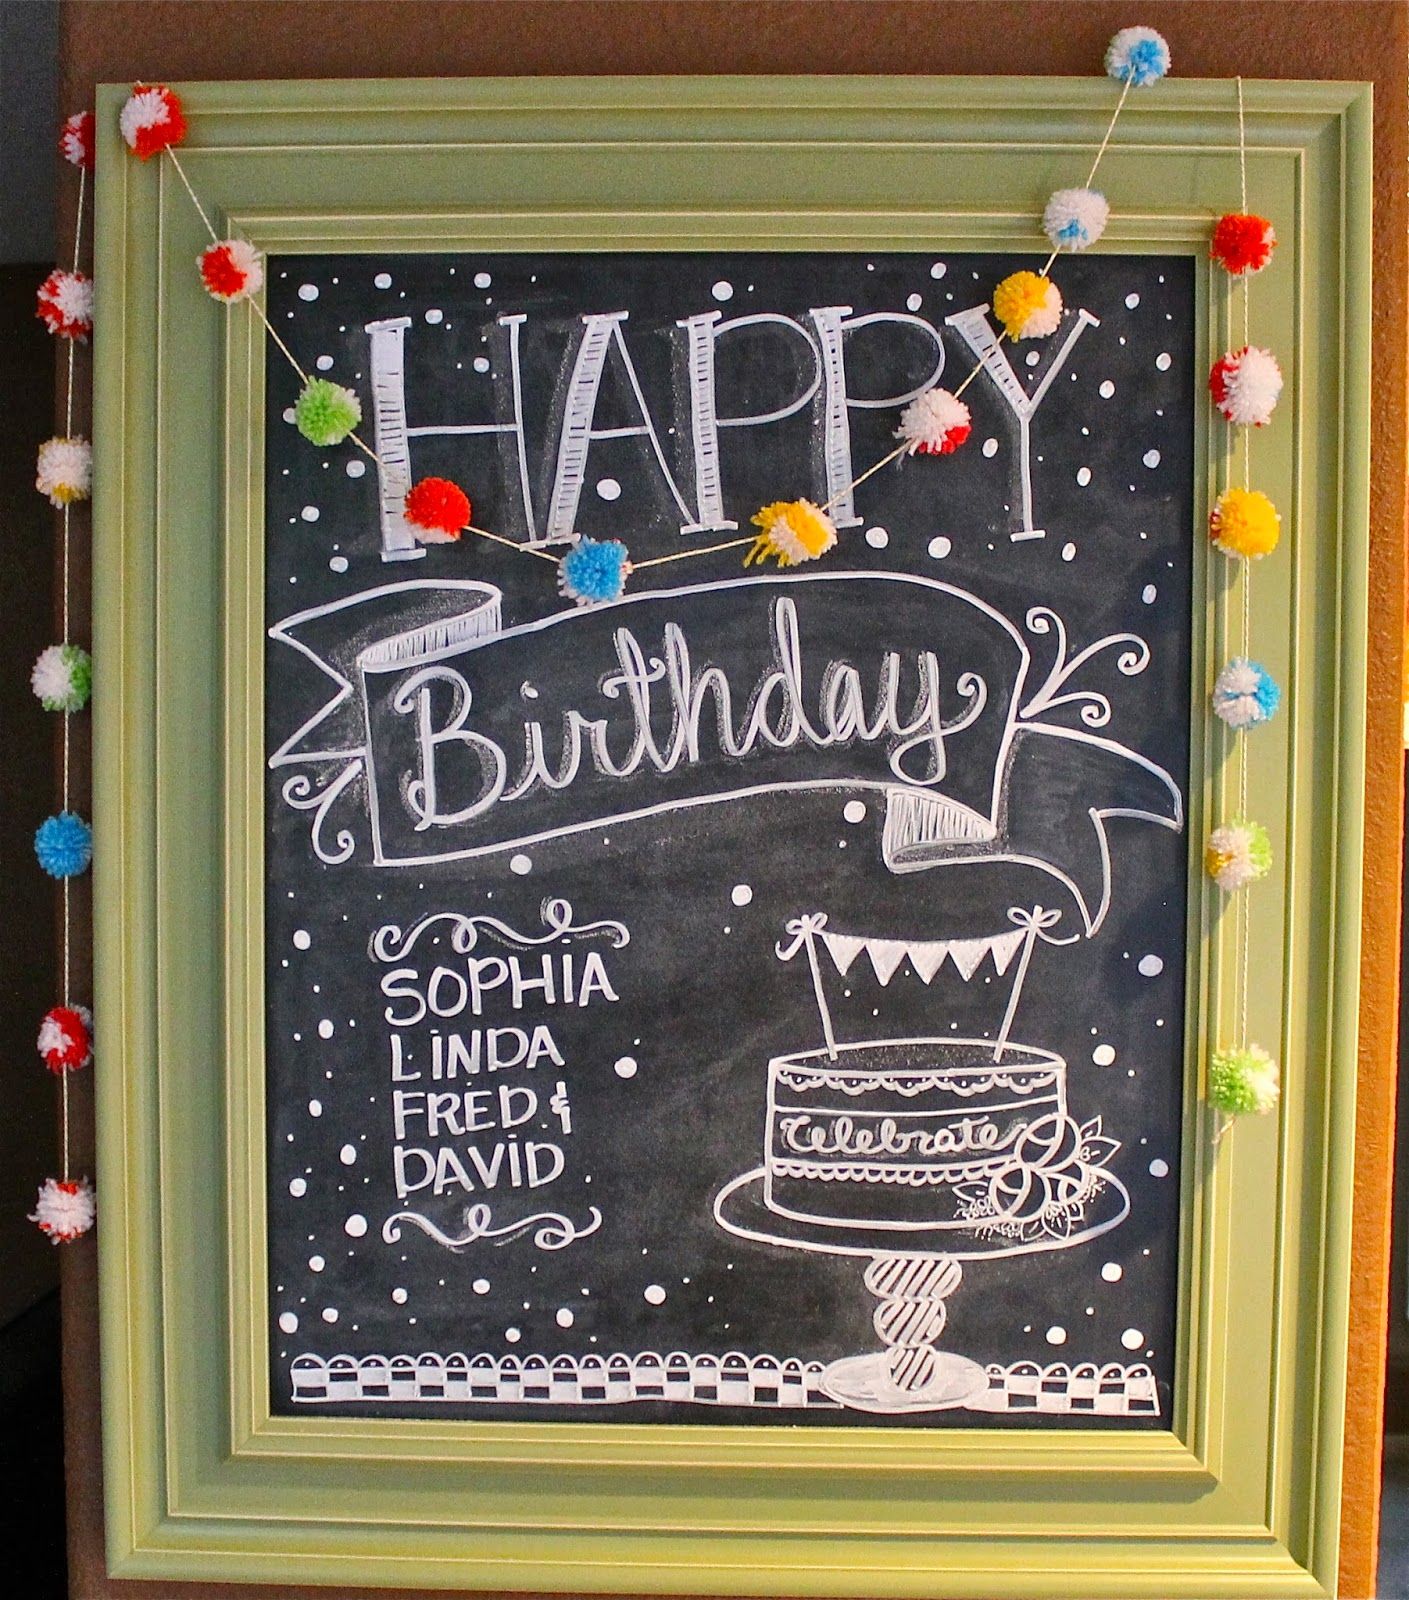 HAPPY
Birthday
SOPHIA
LINDA
FRED &
DAVID
Celebrate